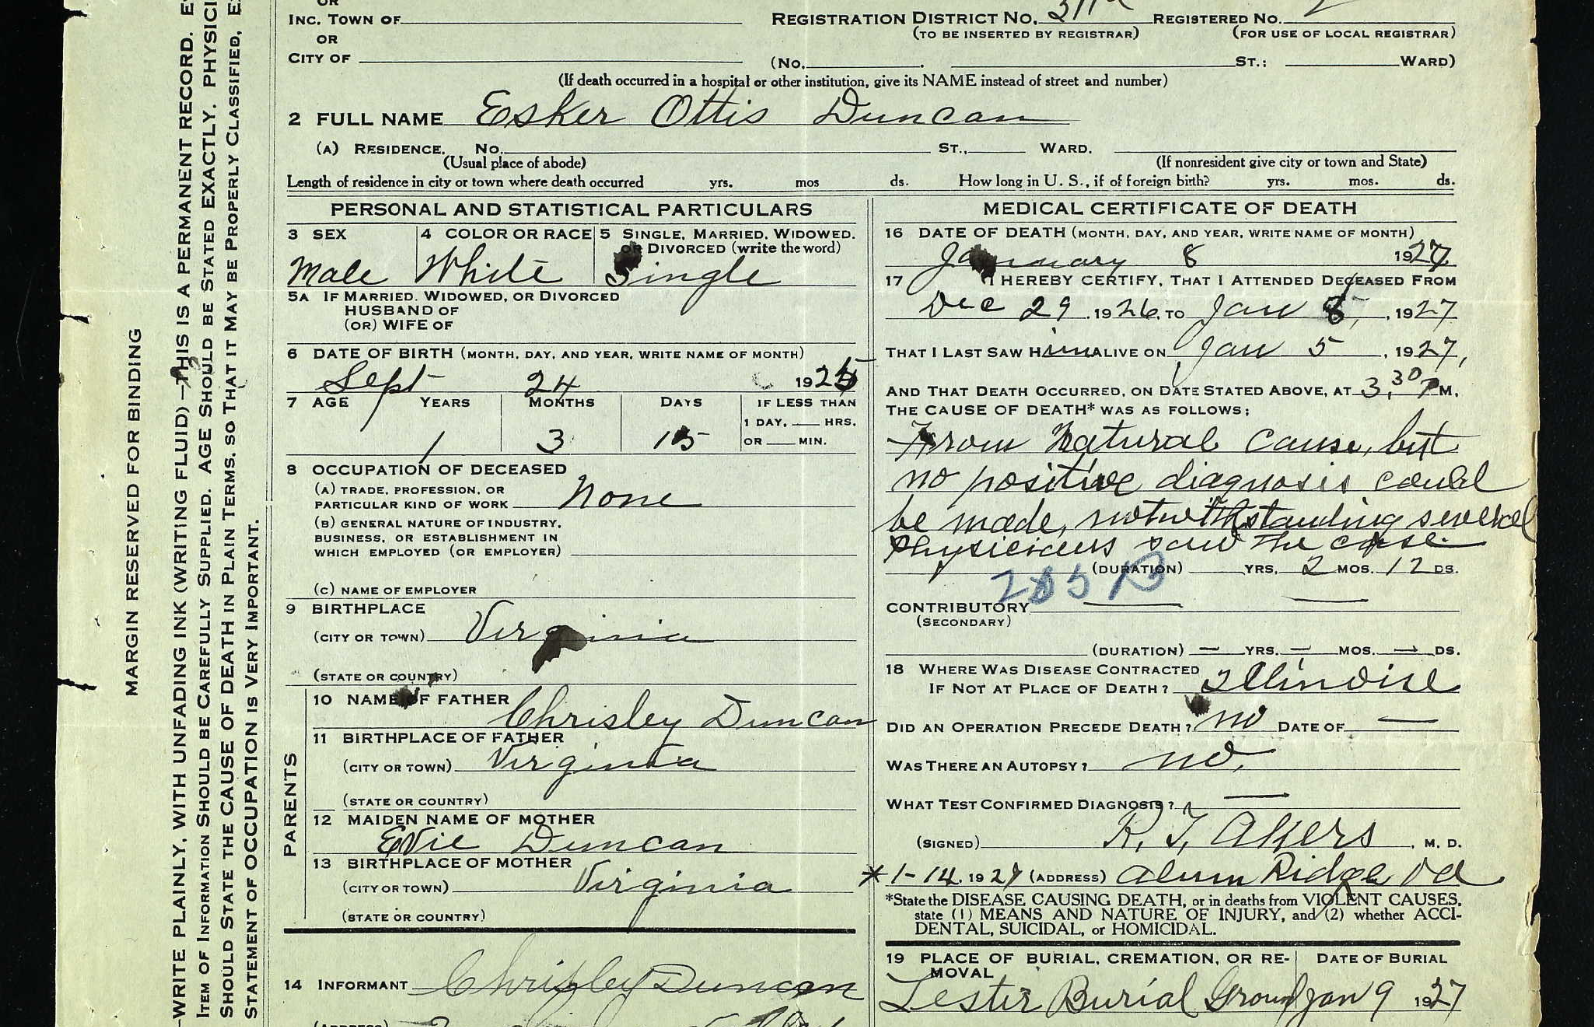 OR
INC. TOWN OF REGISTRATION DISTRICT NO. REGISTERED NO.
OR (TO BE INSERTED BY REGISTRAR) (FOR USE OF LOCAL REGISTRAR)
CITY OF (No. ST.: WARD)
(If death occurred in a hospital or other institution, give its NAME instead of street and number)
2 FULL NAME Esker Ottis Duncan
(A) RESIDENCE. No. ST., WARD.
(Usual place of abode) (If nonresident give city or town and State)
Length of residence in city or town where death occurred yrs. mos ds. How long in U. S., if of foreign birth? yrs. mos. ds.
PERSONAL AND STATISTICAL PARTICULARS
3 SEX 4 COLOR OR RACE 5 SINGLE, MARRIED, WIDOWED.
OR DIVORCED (write the word)
Male White Single
5A IF MARRIED. WIDOWED, OR DIVORCED
HUSBAND OF
(OR) WIFE OF
6 DATE OF BIRTH (MONTH, DAY, AND YEAR, WRITE NAME OF MONTH)
Sept 24 1925
7 AGE YEARS MONTHS DAYS IF LESS THAN
1 DAY, HRS.
1 3 15 OR MIN.
8 OCCUPATION OF DECEASED
(A) TRADE, PROFESSION, OR
PARTICULAR KIND OF WORK None
(B) GENERAL NATURE OF INDUSTRY,
BUSINESS, OR ESTABLISHMENT IN
WHICH EMPLOYED (OR EMPLOYER)
(C) NAME OF EMPLOYER
9 BIRTHPLACE
(CITY OR TOWN) Virginia
(STATE OR COUNTRY)
PARENTS
10 NAME OF FATHER
Chrisley Duncan
11 BIRTHPLACE OF FATHER
(CITY OR TOWN) Virginia
(STATE OR COUNTRY)
12 MAIDEN NAME OF MOTHER
Evie Duncan
13 BIRTHPLACE OF MOTHER
(CITY OR TOWN) Virginia
(STATE OR COUNTRY)
14 INFORMANT Chrisley Duncan
(ADDRESS)
MEDICAL CERTIFICATE OF DEATH
16 DATE OF DEATH (MONTH, DAY, AND YEAR, WRITE NAME OF MONTH)
January 8 1927
17 I HEREBY CERTIFY, THAT I ATTENDED DECEASED FROM
Dec 29, 1926, TO Jan 8, 1927
THAT I LAST SAW HIM ALIVE ON Jan 5, 1927,
AND THAT DEATH OCCURRED, ON DATE STATED ABOVE, AT 3,30 P M.
THE CAUSE OF DEATH* WAS AS FOLLOWS:
From Natural cause, but
no positive diagnosis could
be made, notwithstanding several
Physicians saw the case.
(DURATION) YRS. 2 MOS. 12 DS.
CONTRIBUTORY
(SECONDARY)
(DURATION) — YRS. — MOS. — DS.
18 WHERE WAS DISEASE CONTRACTED
IF NOT AT PLACE OF DEATH? Illinoise
DID AN OPERATION PRECEDE DEATH? no DATE OF —
WAS THERE AN AUTOPSY? no.
WHAT TEST CONFIRMED DIAGNOSIS? —
(SIGNED) R. T. Akers, M. D.
*1-14. 1927 (ADDRESS) Alum Ridge Va
*State the DISEASE CAUSING DEATH, or in deaths from VIOLENT CAUSES,
state (1) MEANS AND NATURE OF INJURY, and (2) whether ACCI-
DENTAL, SUICIDAL, or HOMICIDAL.
19 PLACE OF BURIAL, CREMATION, OR RE- DATE OF BURIAL
MOVAL
Lester Burial Ground Jan 9 1927
MARGIN RESERVED FOR BINDING
—WRITE PLAINLY, WITH UNFADING INK (WRITING FLUID)—THIS IS A PERMANENT RECORD.
ITEM OF INFORMATION SHOULD BE CAREFULLY SUPPLIED. AGE SHOULD BE STATED EXACTLY.
SHOULD STATE THE CAUSE OF DEATH IN PLAIN TERMS, SO THAT IT MAY BE PROPERLY CLASSIFIED,
STATEMENT OF OCCUPATION IS VERY IMPORTANT.